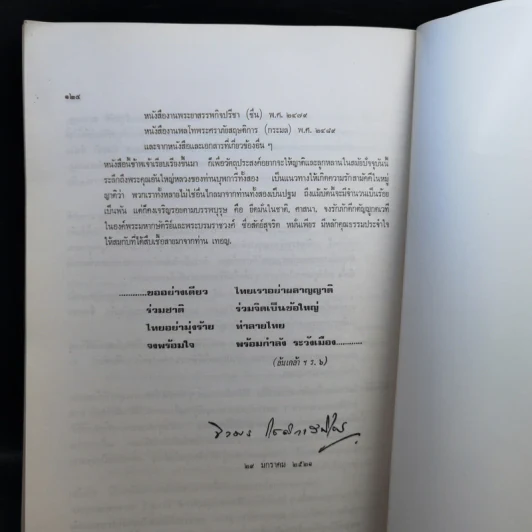 ๑๒๔
หนังสืองานพระยาสรรพกิจปรีชา (ชื่น) พ.ศ. ๒๔๗๙
หนังสืองานพลโทพระศราภัยสฤษดิการ (กระมล) พ.ศ. ๒๔๘๙
และจากหนังสือและเอกสารที่เกี่ยวข้องอื่น ๆ
หนังสือนี้ข้าพเจ้าเรียบเรียงขึ้นมา ก็เพื่อวัตถุประสงค์อยากจะให้ญาติและลูกหลานในสมัยปัจจุบันนี้
ระลึกถึงพระคุณอันใหญ่หลวงของท่านบุพการีทั้งสอง เป็นแนวทางให้เกิดความรักสามัคคีในหมู่
ญาติว่า พวกเราทั้งหลายไม่ใช่อื่นไกลมาจากท่านทั้งสองเป็นปฐม ถึงแม้บัดนี้จะมีจำนวนเป็นร้อย
เป็นพัน แต่ก็คงเจริญรอยตามบรรพบุรุษ คือ ยึดมั่นในชาติ, ศาสนา, จงรักภักดีกตัญญูกตเวที
ในองค์พระมหากษัตริย์และพระบรมราชวงศ์ ซื่อสัตย์สุจริต หมั่นเพียร มีหลักคุณธรรมประจำใจ
ให้สมกับที่ได้สืบเชื้อสายมาจากท่าน เทอญ.
............ขออย่างเดียว ไทยเราอย่าผลาญญาติ
ร่วมชาติ ร่วมจิตเป็นข้อใหญ่
ไทยอย่ามุ่งร้าย ทำลายไทย
จงพร้อมใจ พร้อมกำลัง ระวังเมือง............
(ล้นเกล้า ฯ ร. ๖)
๒๙ มกราคม ๒๕๒๑